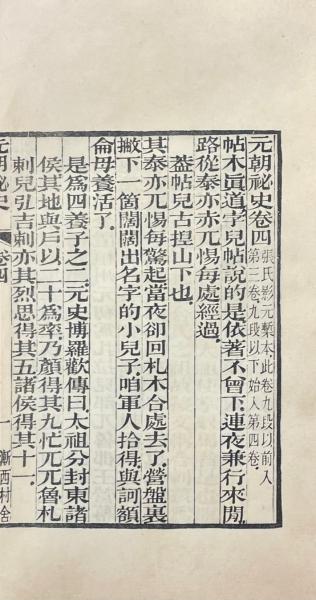 元朝祕史卷四張氏影元槧本此卷九段以前入
第三卷九段以下始入第四卷
帖木眞道孛兒帖說的是依著不曾下連夜兼行來閒
路從泰亦亦兀惕每處經過
葢帖兒古揑山下也
其泰亦兀惕每驚起當夜卻回札木合處去了營盤裏
撇下一箇闊闊出名字的小兒子咱軍人拾得與訶額
侖母養活了
是爲四養子之二元史博羅歡傳曰太祖分封東諸
侯其地與戶以二十爲率乃顏得其九忙兀兀魯札
剌兒弘吉剌亦其烈思得其五諸侯得其十一
元朝祕史
卷四
一
漸西村舍